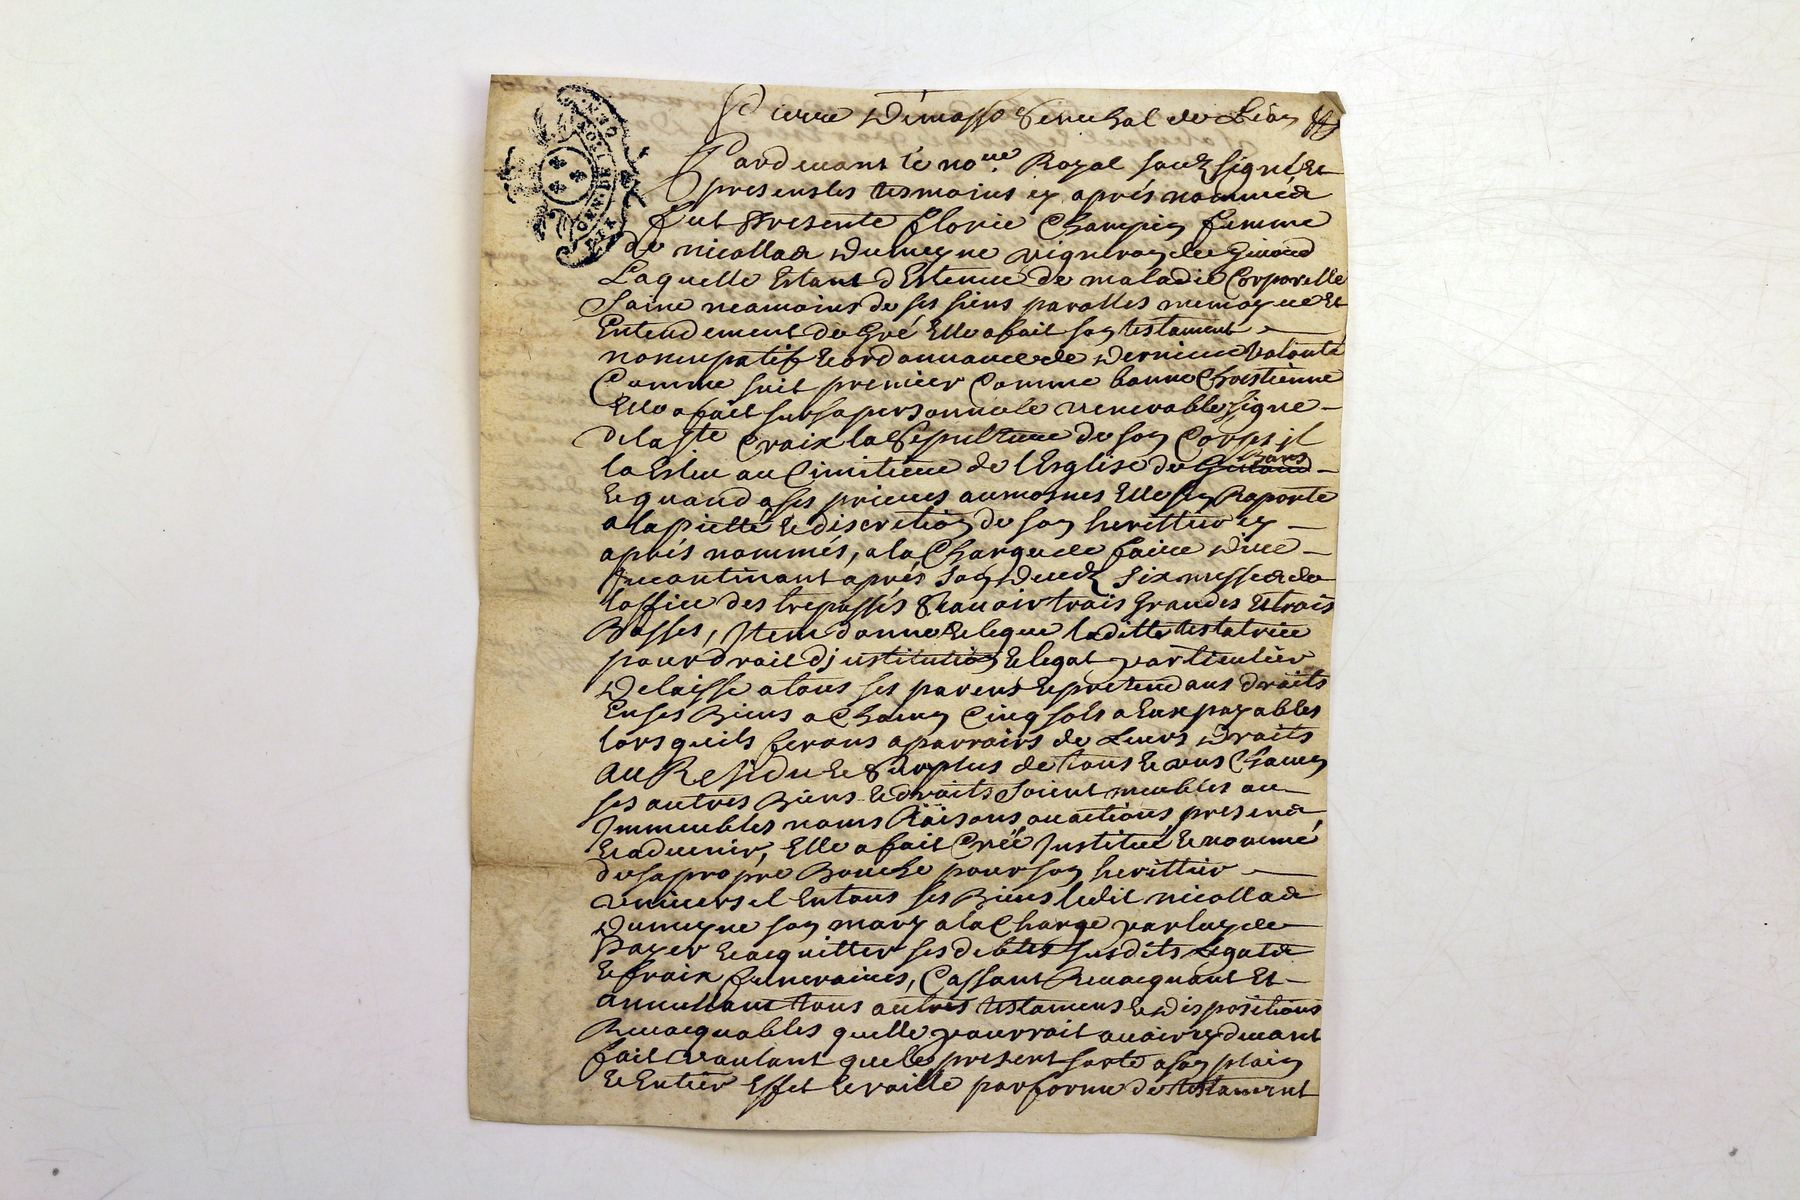 Pierre Demasso Senechal de Lion
Pardevant le no.re Royal soubzsigné Et
presens les tesmoins cy aprés nommés
fut Presente Florie Champion femme
de nicollas Dumeyne vigneron de
Laquelle Estant dEtenue de maladie Corporelle
Saine neamoins de ses sens parolles memoyre Et
Entendement de Gré Elle a fait son testament
noncupatif & ordonnance de Derniere Volonté
Comme suit premier Comme bonne Chrestienne
Elle a fait sur sa personne le venerable signe
de la ste Croix la Sepulture de son Corps il
la Eslue au Cimitiere de lEsglise de
& quand a ses prieres aumosnes Elle sen Raporte
a la pietté & discretion de son herittier cy
aprés nommés, a la Charge de faire Dire
Incontinant aprés son Decedz six messes de
loffice des trepassés Scauoir trois Grandes Et trois
Basses, Item donne & legue laditte testatrice
pour droit dinstitution & legat particulier
Delaisse a tous ses parens & pretendans droits
En ses Biens a Chacun Cinq sols a Eux payables
lors queils feront aparroirs de Leurs Droits
au Residu & Surplus de tous & uns Chacun
ses autres Biens & droits soient meubles ou
Immeubles noms Raisons ou actions presens
& aduenir, Elle a fait Créé Institué & nommé
de sa propre Bouche pour son herittier
vniuersel En tous ses Biens ledit nicollas
Dumeyne son mary a la Charge par luy de
Payer & acquitter ses debtes susdits Legats
& fraix funeraires, Cassant Reuocquant Et
annullant tous autres testamens & Dispositions
Reuocquables quelle pourroit auoir cy deuant
fait voulant que le present sorte a son plain
& Entier Effet & vaille par forme de testament